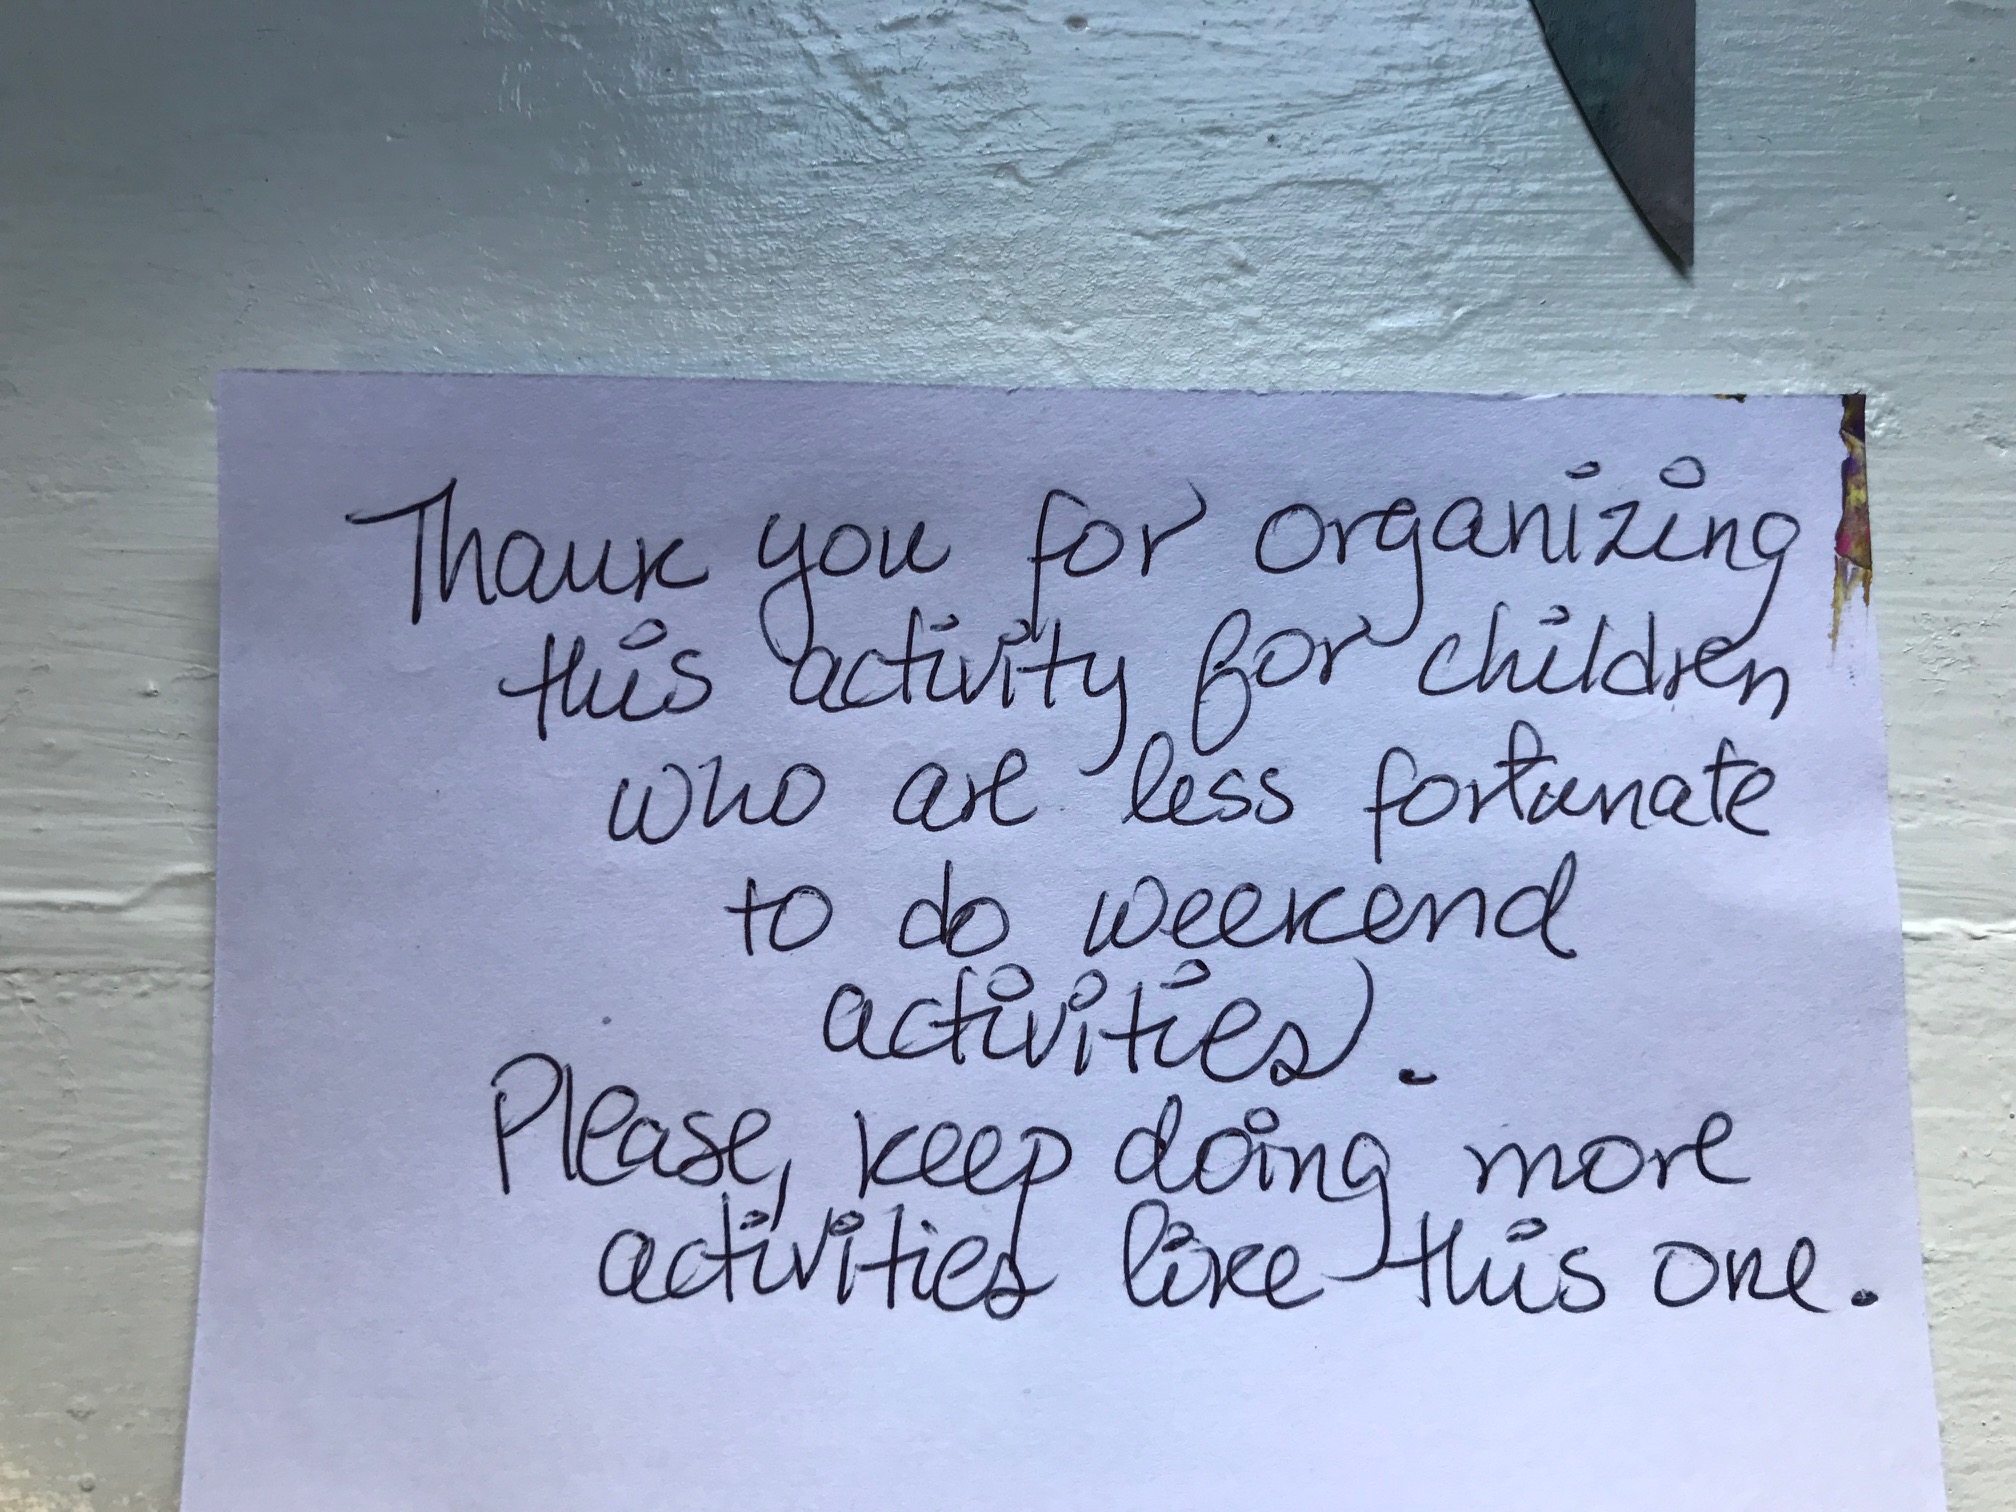 Thank you for organizing
this activity for children
who are less fortunate
to do weekend
activities.
Please, keep doing more
activities like this one.